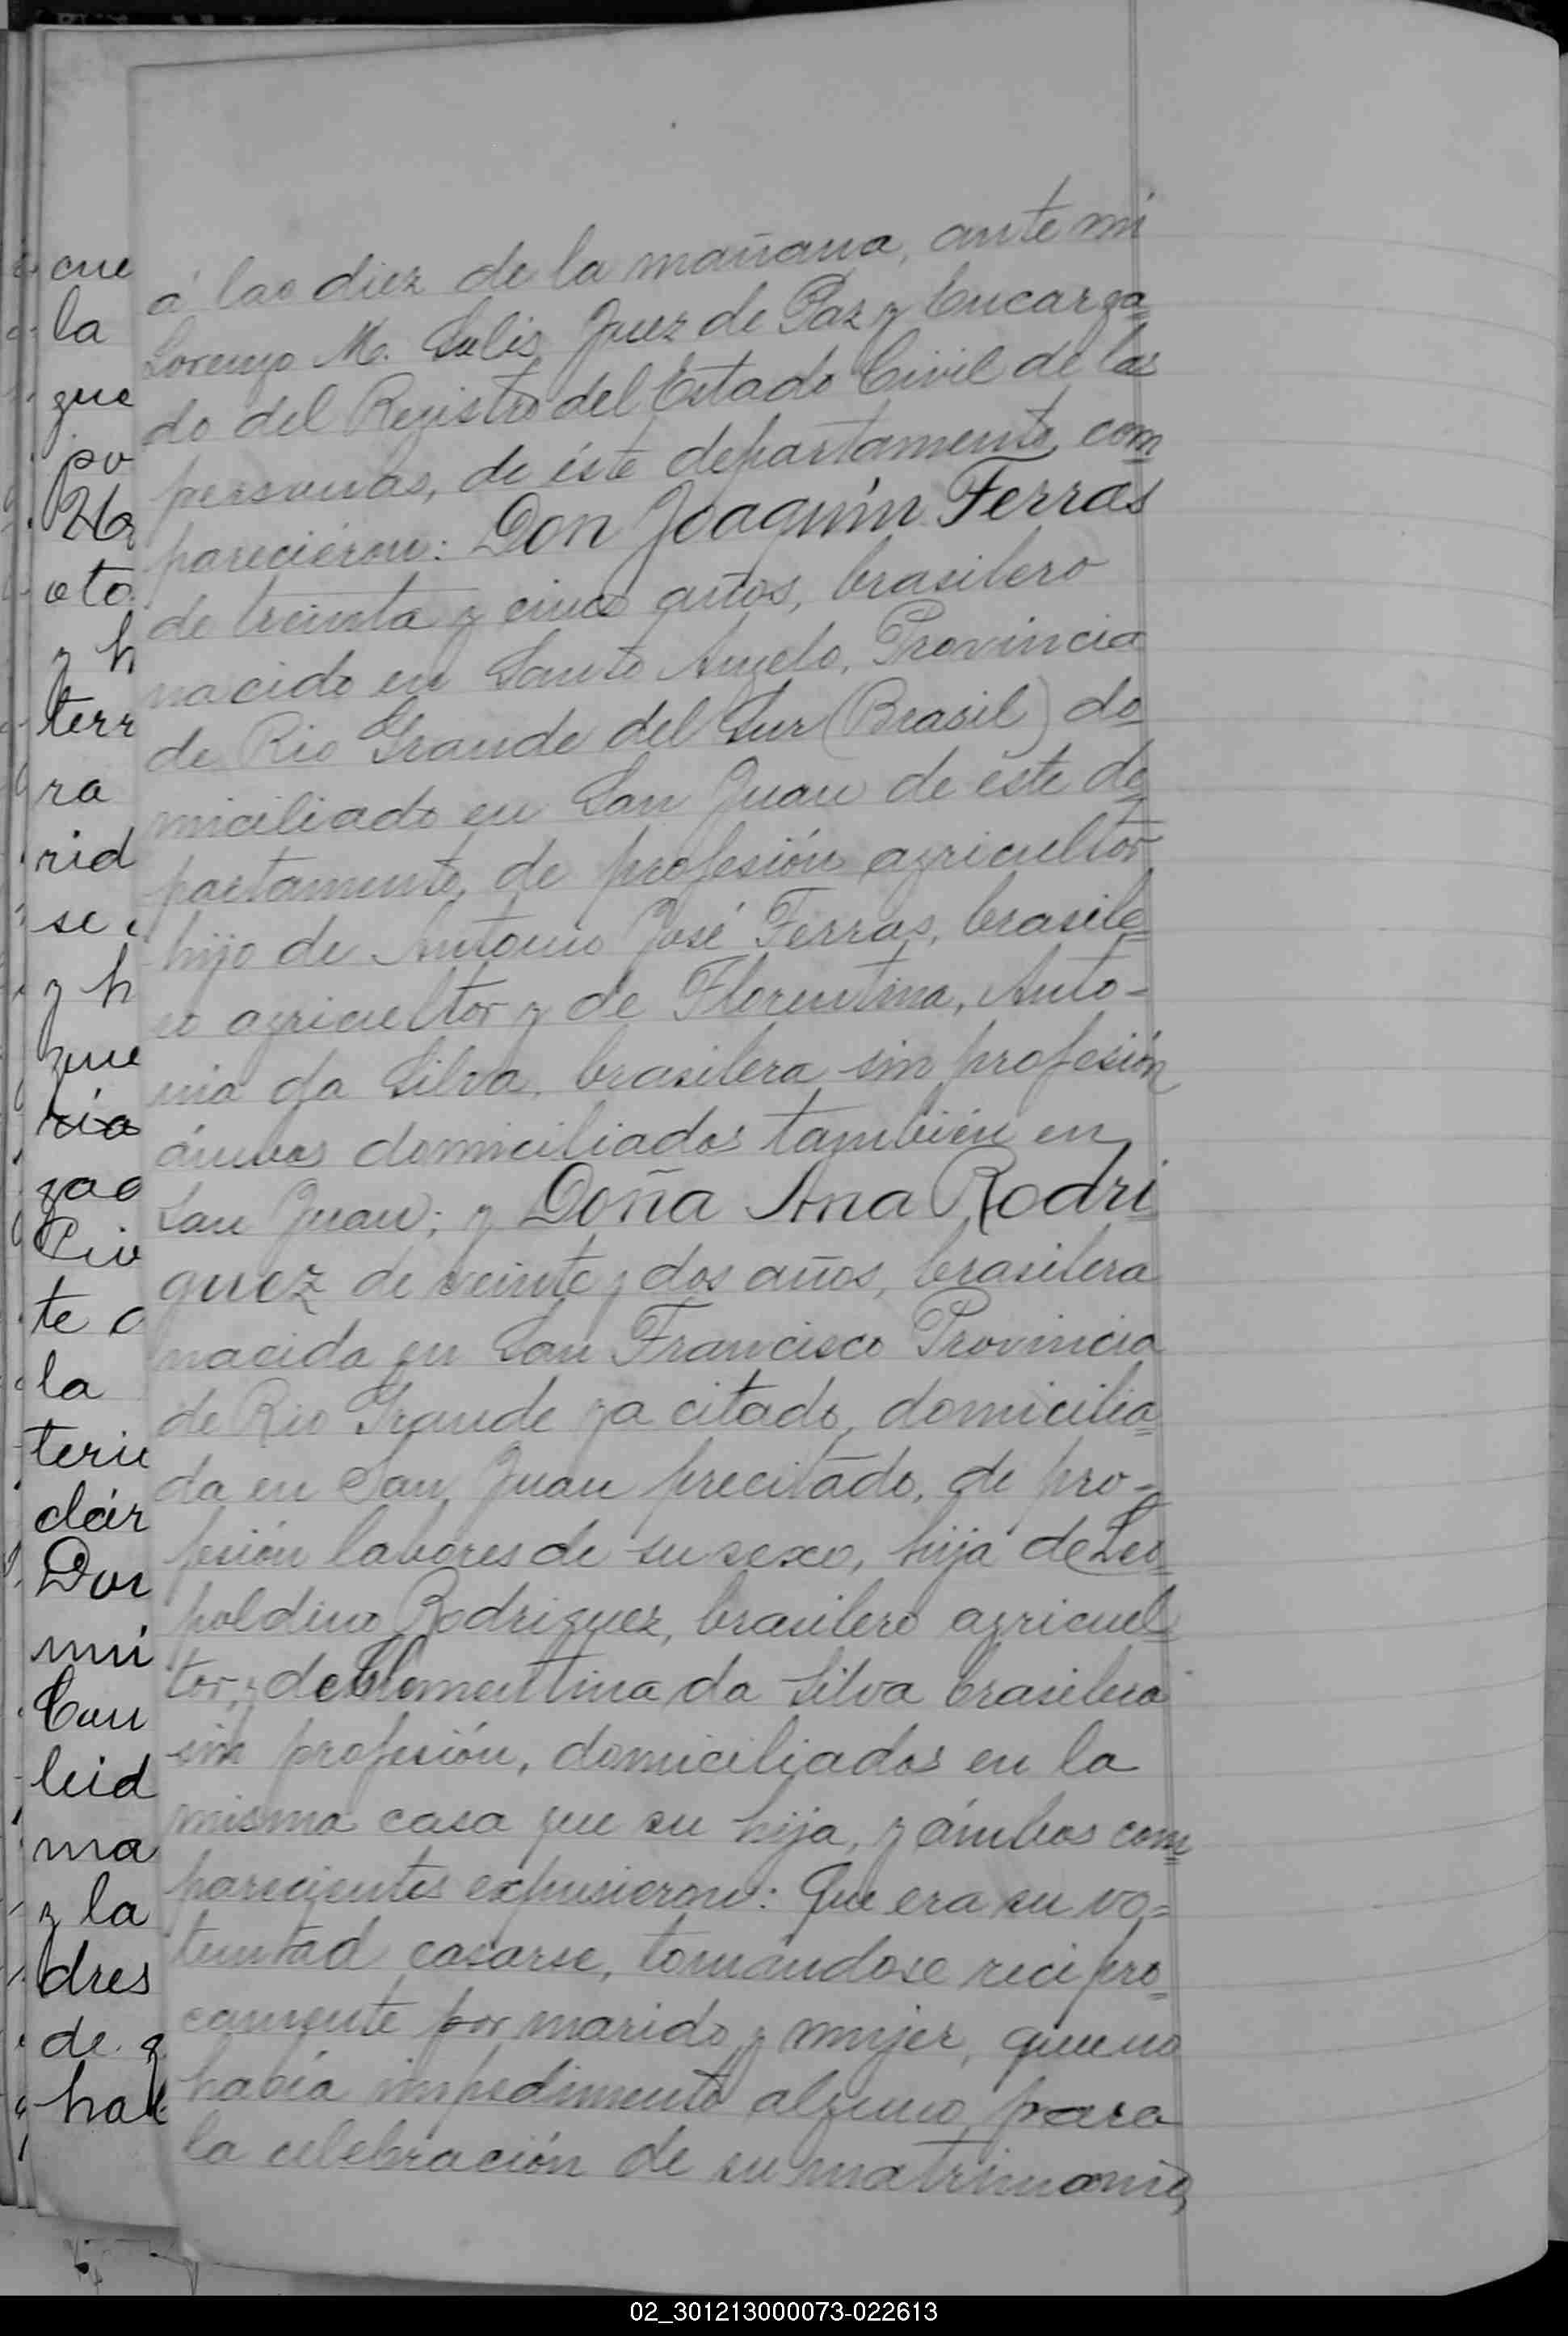 cue
la
que
po
Ha
oto
y h
terr
ra
rid
se
y h
que
ria
zao
Civ
te
la
teri
clár
Don
mi
Cau
leid
ma
y la
dres
de
hab
á las diez de la mañana, ante mi
Lorenzo M. Solis Juez de Paz y Encarga
do del Registro del Estado Civil de las
personas, de éste departamento, com
pareciéron: Don Joaquín Ferras
de treinta y cinco años, brasilero
nacido en Santo Angelo, Provincia
de Rio Grande del Sur (Brasil) do
miciliado en San Juan de éste de
partamento, de profesión agricultor
hijo de Antonio José Ferras, brasile
ro agricultor y de Florentina, Anto-
nia da Silva, brasilera sin profesión
ámbos domiciliados también en
San Juan; y Doña Ana Rodri
guez de veinte y dos años, brasilera
nacida en San Francisco Provincia
de Rio Grande ya citado, domicilia
da en San Juan precitado, de pro-
fesión labores de su sexo, hija de Leo
poldino Rodriguez, brasilero agricul
tor, y de Clementina da Silva brasilera
sin profesión, domiciliados en la
misma casa que su hija, y ámbos com
parecientes expusieron: Que era su vo=
luntad casarse, tomándose recipro
camente por marido y mujer, que no
había impedimento alguno para
la celebración de su matrimonio,
02_301213000073-022613